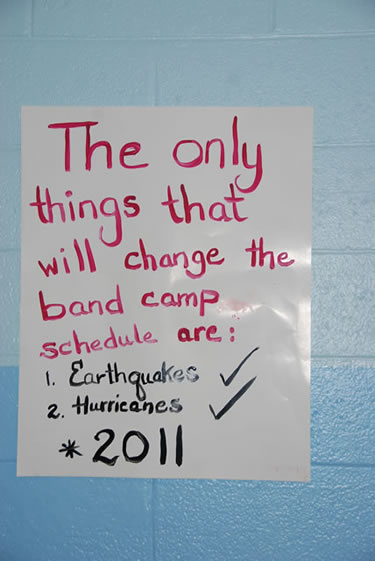 The only
things that
will change the
band camp
schedule are:
1. Earthquakes ✓
2. Hurricanes ✓
* 2011